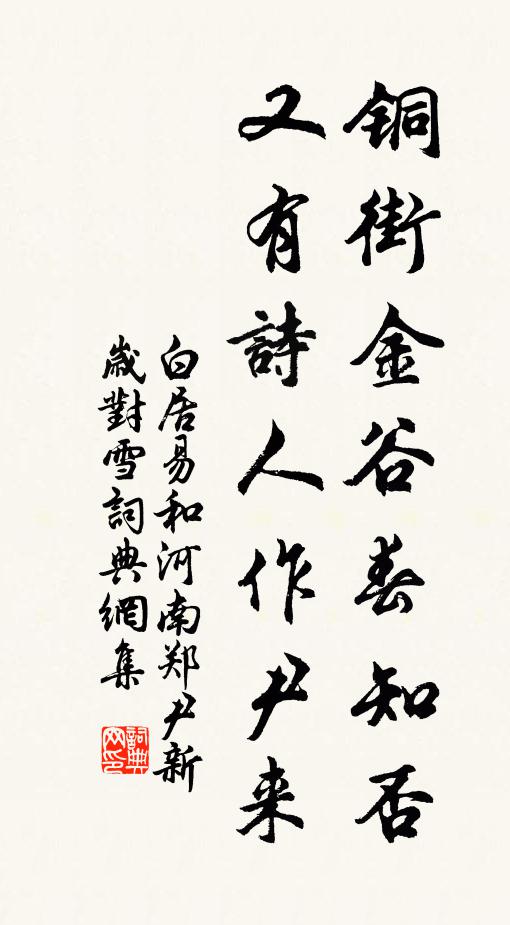 铜街金谷春知否
又有詩人作尹来
白居易和河南郑尹新
歲對雪詞典網集
詞典
网印